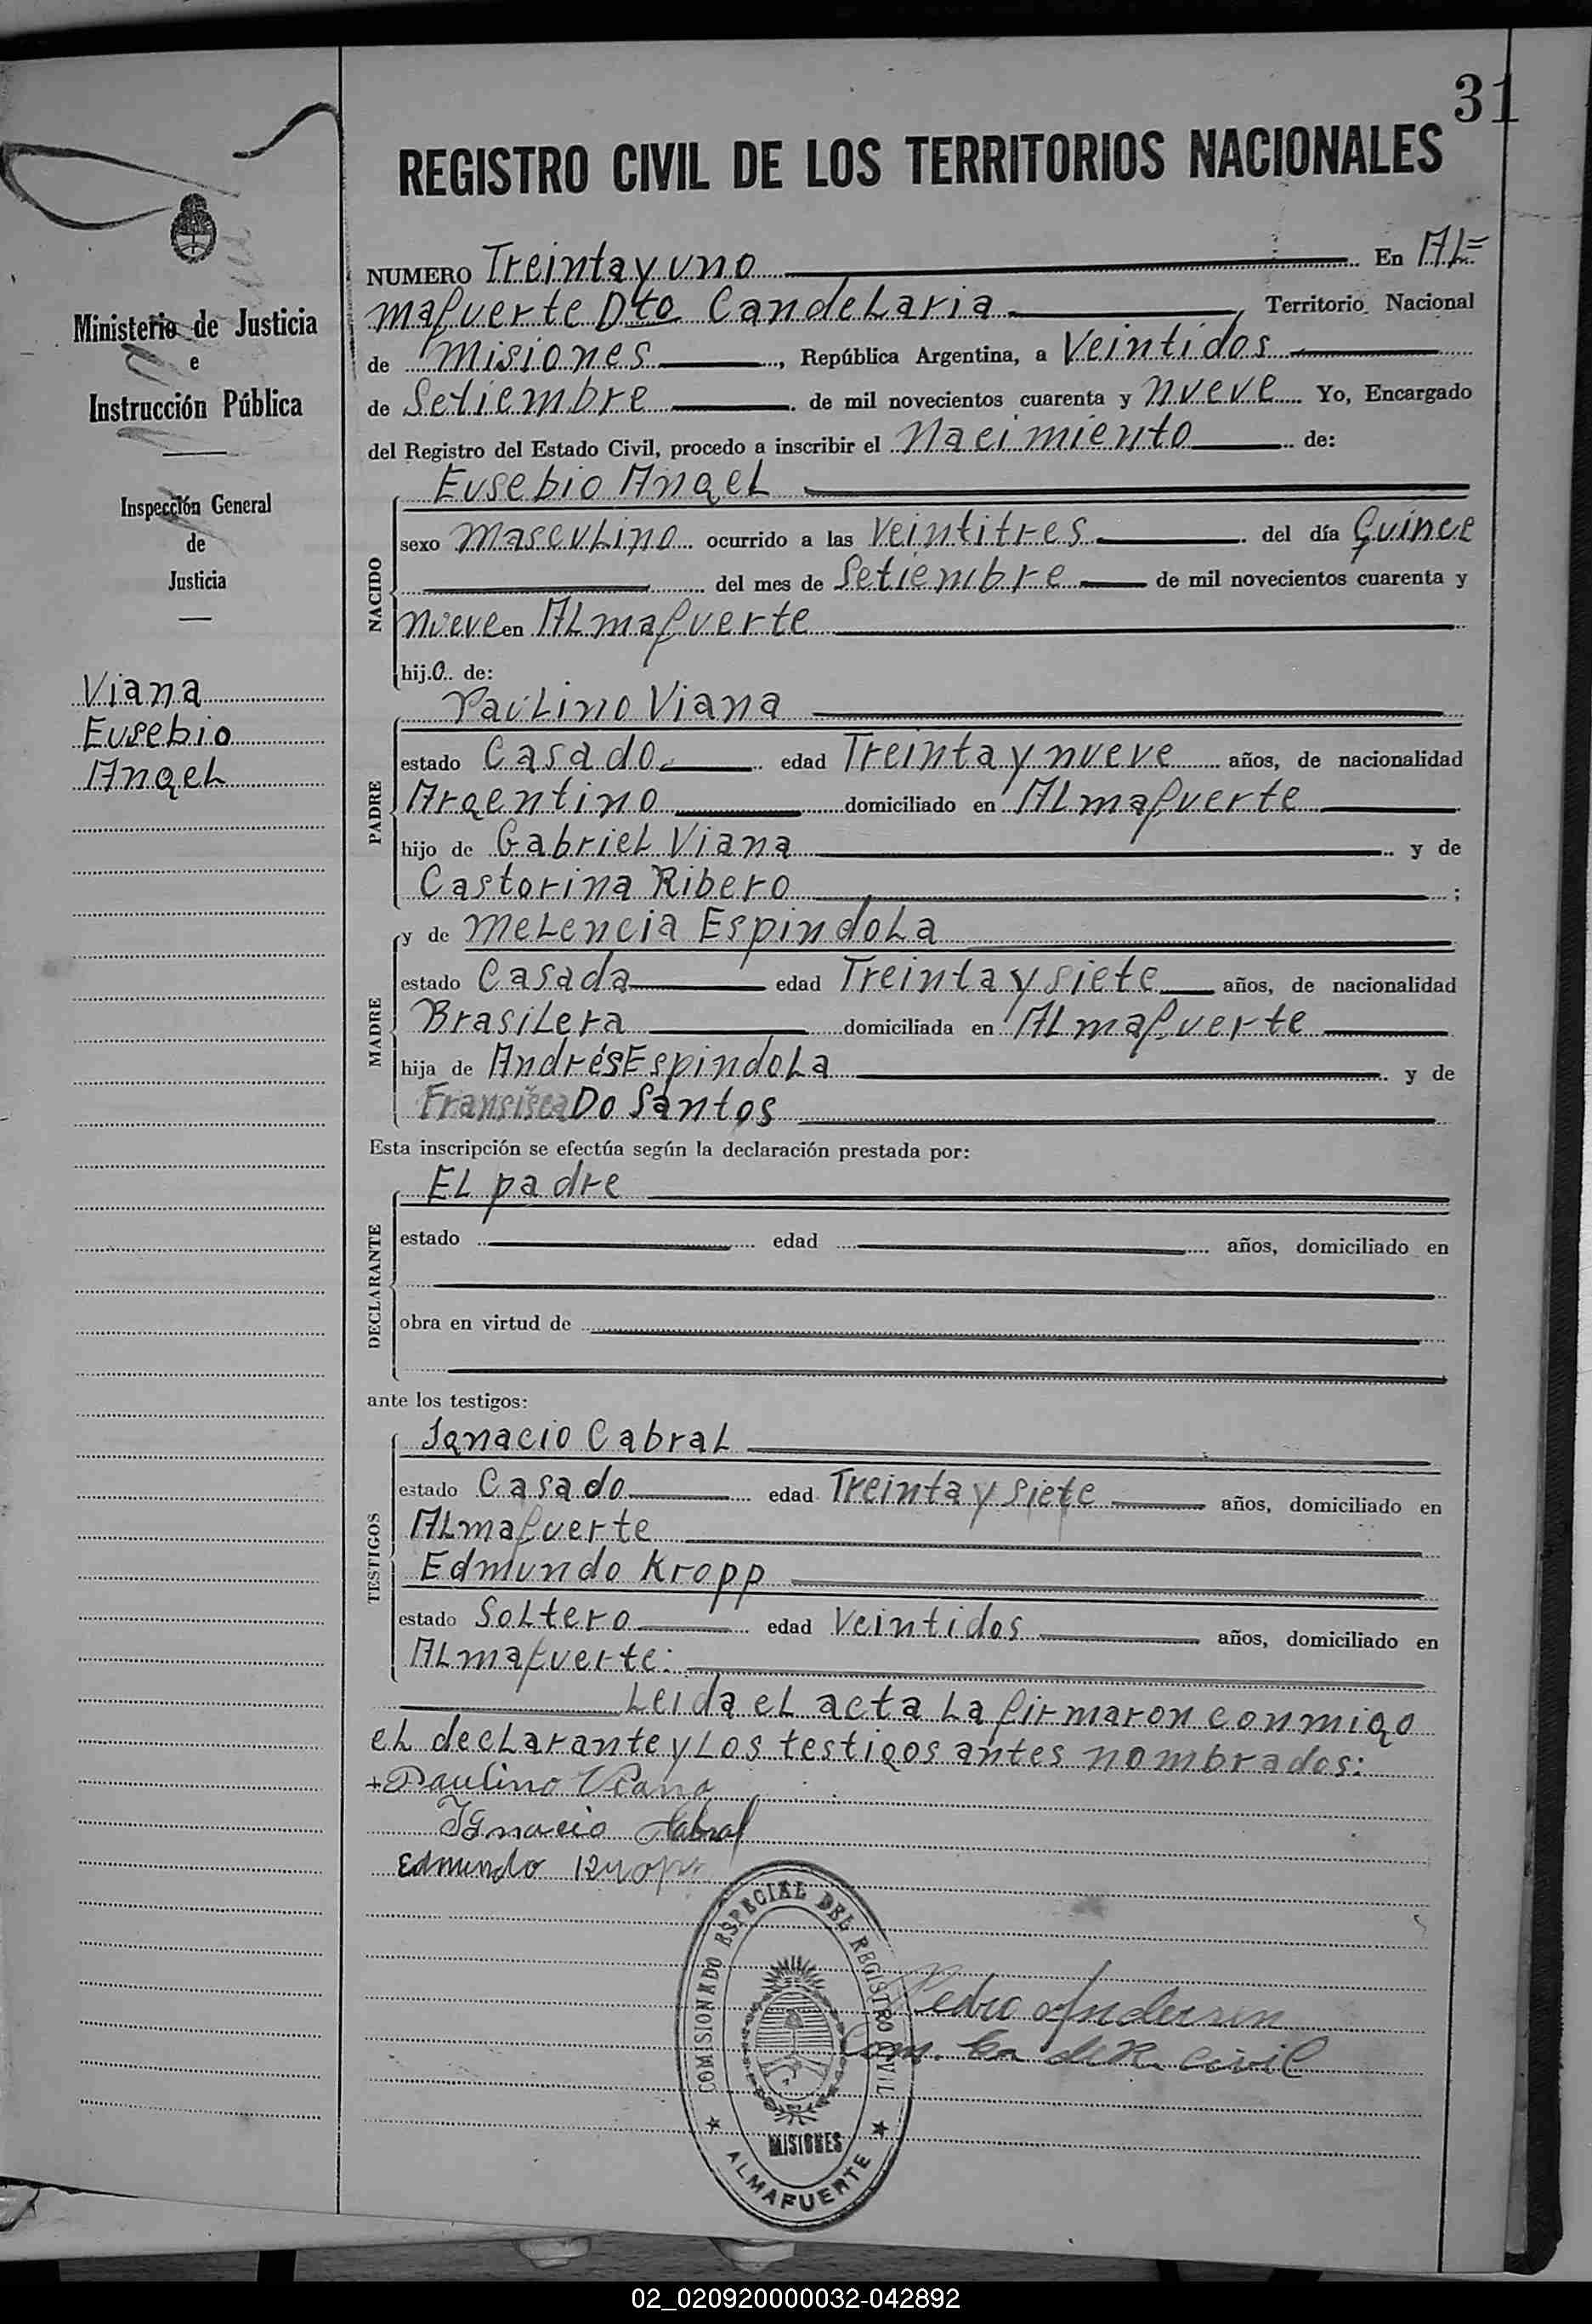 31
REGISTRO CIVIL DE LOS TERRITORIOS NACIONALES
Ministerio de Justicia
e
Instrucción Pública
Inspección General
de
Justicia
Viana
Eusebio
Angel
NUMERO Treinta y uno En Al=
mafuerte Dto Candelaria, Territorio Nacional
de Misiones, República Argentina, a Veintidos
de Setiembre de mil novecientos cuarenta y nueve Yo, Encargado
del Registro del Estado Civil, procedo a inscribir el Nacimiento de:
NACIDO
Eusebio Angel
sexo masculino ocurrido a las veintitres del día Quince
del mes de Setiembre de mil novecientos cuarenta y
nueve en Almafuerte
hijo de:
PADRE
Paulino Viana
estado Casado edad Treinta y nueve años, de nacionalidad
Argentino domiciliado en Almafuerte
hijo de Gabriel Viana y de
Castorina Ribero ;
MADRE
y de Melencia Espindola
estado Casada edad Treinta y siete años, de nacionalidad
Brasilera domiciliada en Almafuerte
hija de Andrés Espindola y de
Do Santos
Esta inscripción se efectúa según la declaración prestada por:
DECLARANTE
El padre
estado edad años, domiciliado en
obra en virtud de
ante los testigos:
TESTIGOS
Ignacio Cabral
estado Casado edad Treinta y siete años, domiciliado en
Almafuerte
Edmundo Kropp
estado Soltero edad veintidos años, domiciliado en
Almafuerte:
Leida el acta la firmaron conmigo
el declarante y los testigos antes nombrados:
+Paulino Viana
Ignacio Cabral
Edmundo
Pedro Andersen
civil
COMISIONADO ESPECIAL DEL REGISTRO CIVIL
MISIONES
ALMAFUERTE
02_020920000032-042892